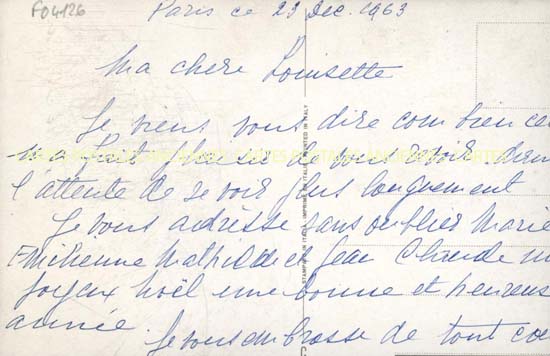 F04126
Paris ce 23 Dec. 1963
Ma chere Louisette
Je viens vous dire combien
m'a fait plaisir de vous revoir
l'attente de se voir plus longuement
Je vous adresse sans oublier Marie
Emilienne Mathilde et Jean Claude
Joyeux Noël une bonne et heureus
année.
Je vous embrasse de tout coe
STAMPATO IN ITALIA - IMPRIMÉ EN ITALIE - PRINTED IN ITALY